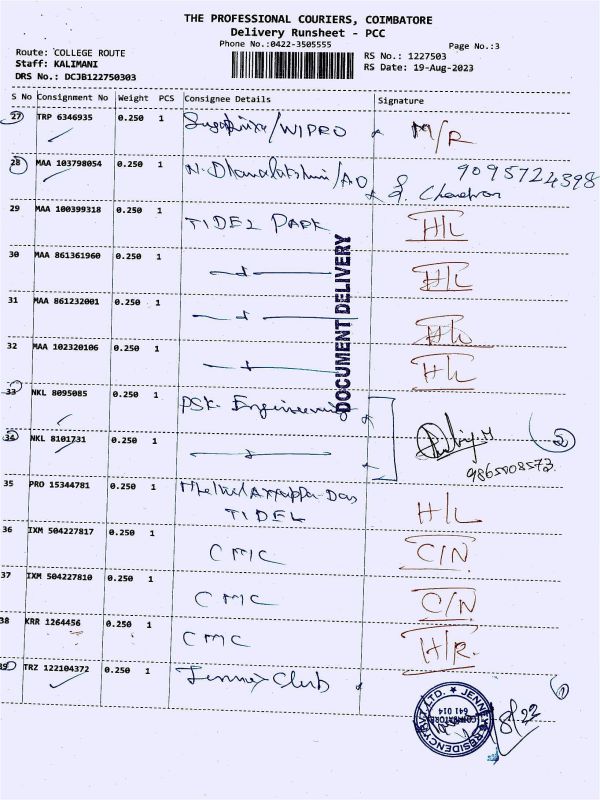 THE PROFESSIONAL COURIERS, COIMBATORE
Delivery Runsheet - PCC
Phone No.:0422-3505555
Page No.:3
Route: COLLEGE ROUTE
Staff: KALIMANI
DRS No.: DCJB122750303
RS No.: 1227503
RS Date: 19-Aug-2023
S No Consignment No Weight PCS Consignee Details Signature
27 TRP 6346935 0.250 1 /WIPRO
28 MAA 103798054 0.250 1 N. Dhanalakshmi/AO 9095724398
29 MAA 100399318 0.250 1 TIDEL PARK H/L
30 MAA 861361960 0.250 1 H/L
31 MAA 861232001 0.250 1 H/L
32 MAA 102320106 0.250 1 H/L
DOCUMENT DELIVERY
33 NKL 8095085 0.250 1 PSK. Engineering
34 NKL 8101731 0.250 1 2
9865008573
35 PRO 15344781 0.250 1
TIDEL H/L
36 IXM 504227817 0.250 1 CMC C/N
37 IXM 504227810 0.250 1 CMC C/N
38 KRR 1264456 0.250 1 CMC H/R.
39 TRZ 122104372 0.250 1 Jenney Club 1
JENNEYS RESIDENCY PVT. LTD.
COIMBATORE
641 014